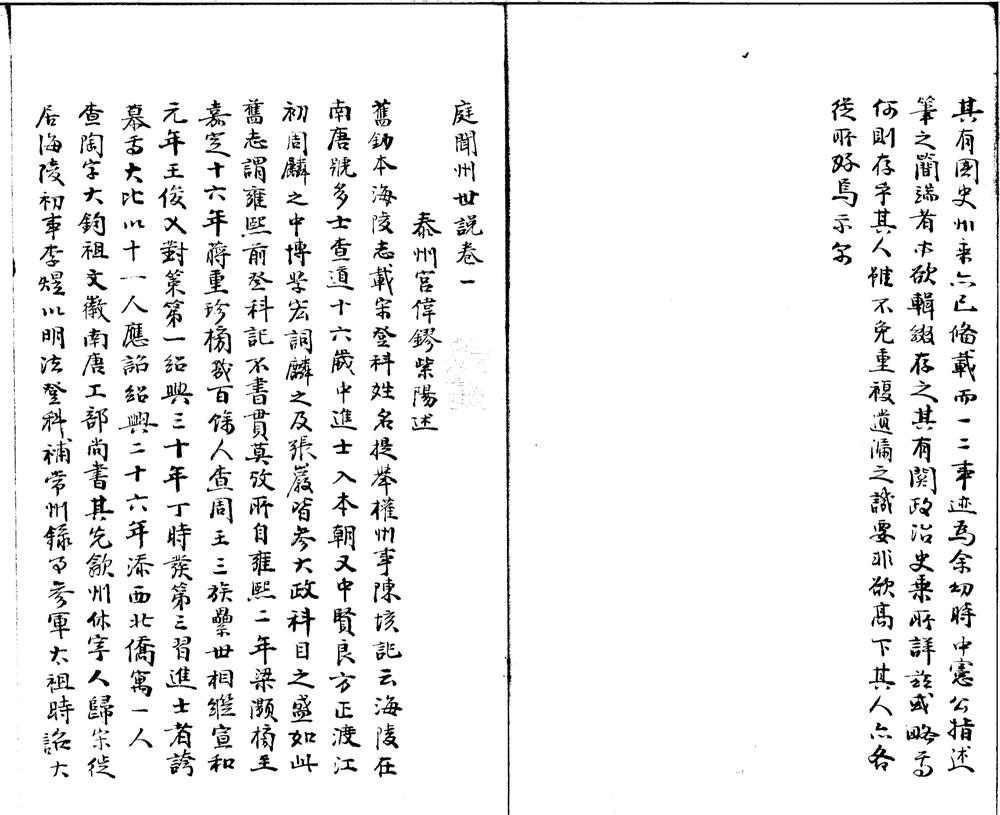 其有國史州乘亦已備載而一二事迹為余幼時中憲公指述
筆之簡端者亦欲輯綴存之其有関政治史乘所詳茲或略焉
何則存乎其人雖不免重複遺漏之譏要非欲高下其人亦各
從所好焉示尔
庭聞州世說卷一
泰州宮偉鏐紫陽述
舊鈔本海陵志載宋登科姓名提举權州事陳垓記云海陵在
南唐號多士查道十六歲中進士入本朝又中賢良方正渡江
初周麟之中博学宏詞麟之及張巖皆參大政科目之盛如此
舊志謂雍熙前登科記不書貫莫攷所自雍熙二年梁灝榜至
嘉定十六年蔣重珍榜幾百餘人查周王三族纍世相繼宣和
元年王俊乂對策第一紹興三十年丁時發第三習進士者誇
慕焉大比以十一人應詔紹興二十六年添西北僑寓一人
查陶字大鈞祖文徽南唐工部尚書其先歙州休寧人歸宋徙
居海陵初事李煜以明法登科補常州錄事參軍太祖時詔大